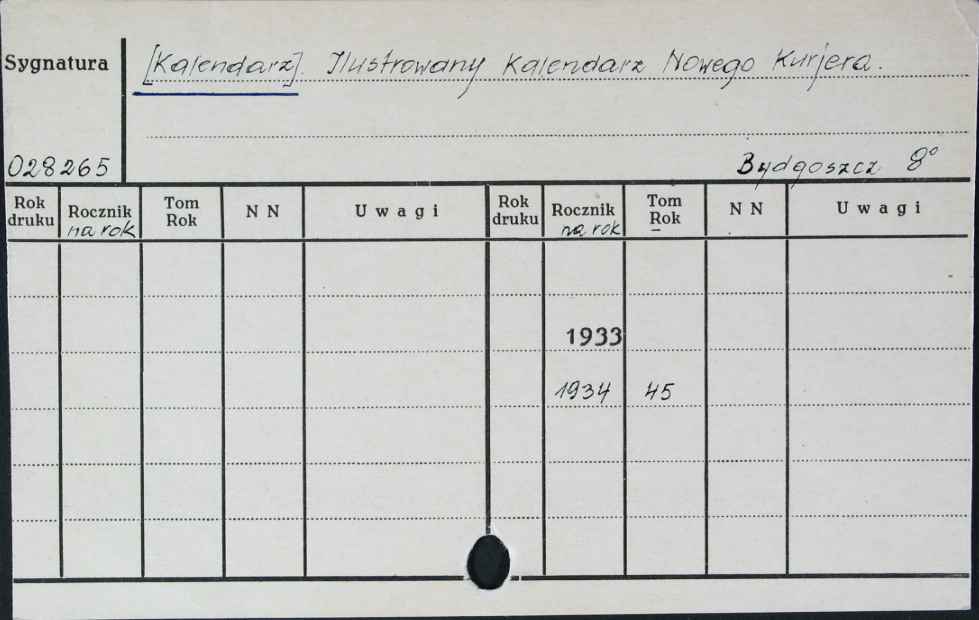 Sygnatura [Kalendarz]. Ilustrowany Kalendarz Nowego Kurjera.
028265 Bydgoszcz 8°
Rok druku Rocznik na rok Tom Rok N N Uwagi Rok druku Rocznik na rok Tom Rok N N Uwagi
1933
1934 45